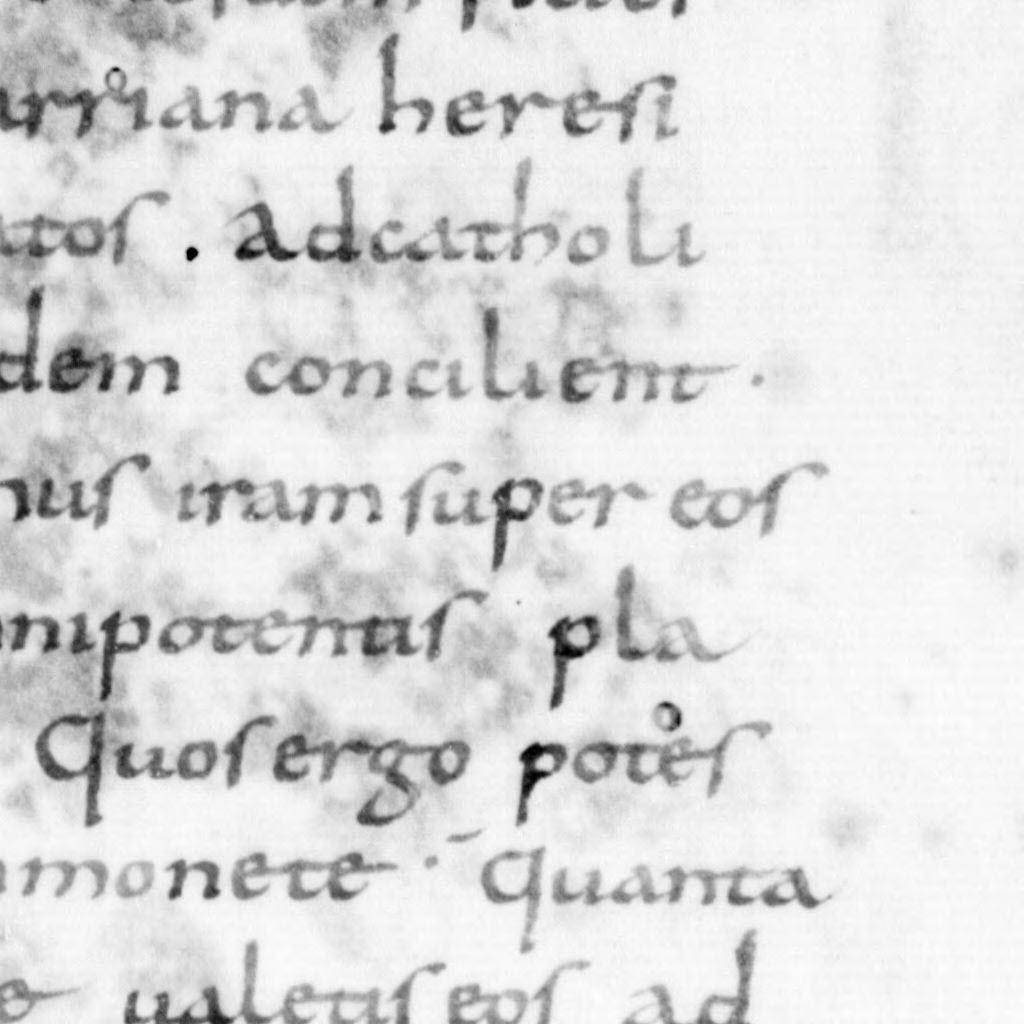 arrºiana heresi
atos . Ad catholi
dem concilient .
nus iram super eos
nipotentis pla
Quos ergo potºes
monete . Quanta
ualetis eos ad